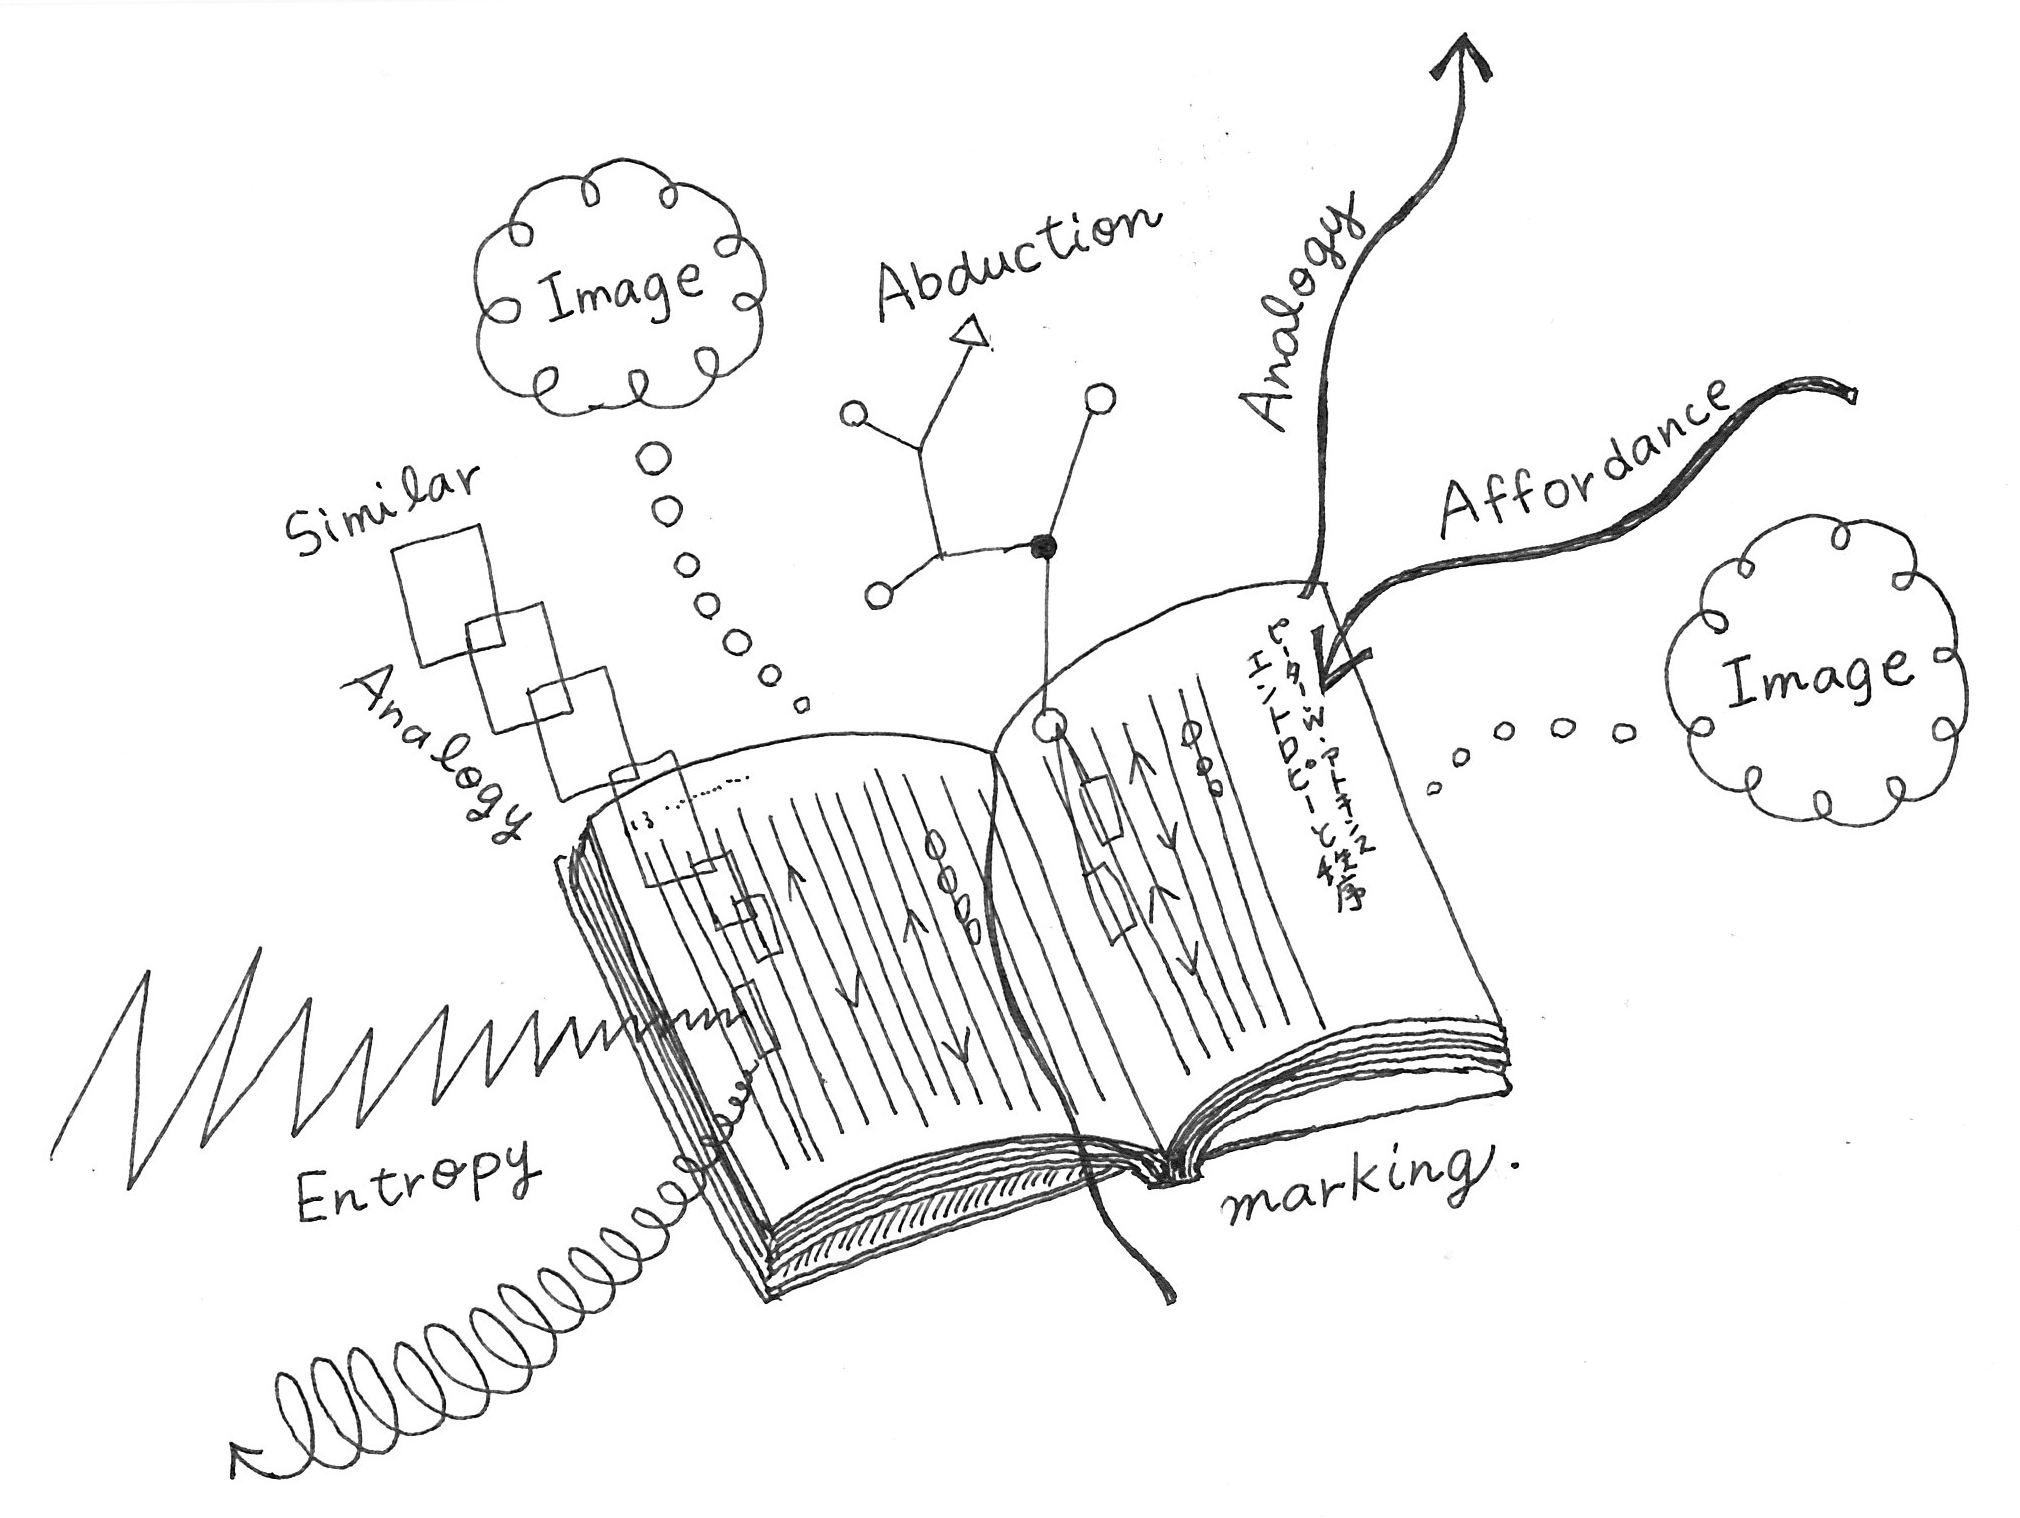 Image
Abduction
Analogy
Affordance
Similar
Analogy
Image
ピーター・W・アトキンス
エントロピーと秩序
13 ............
Entropy
marking.